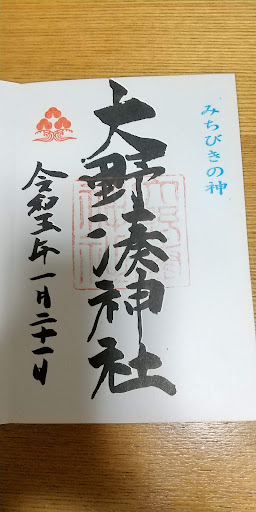 みちびきの神
大野湊神社
令和五年一月二十一日